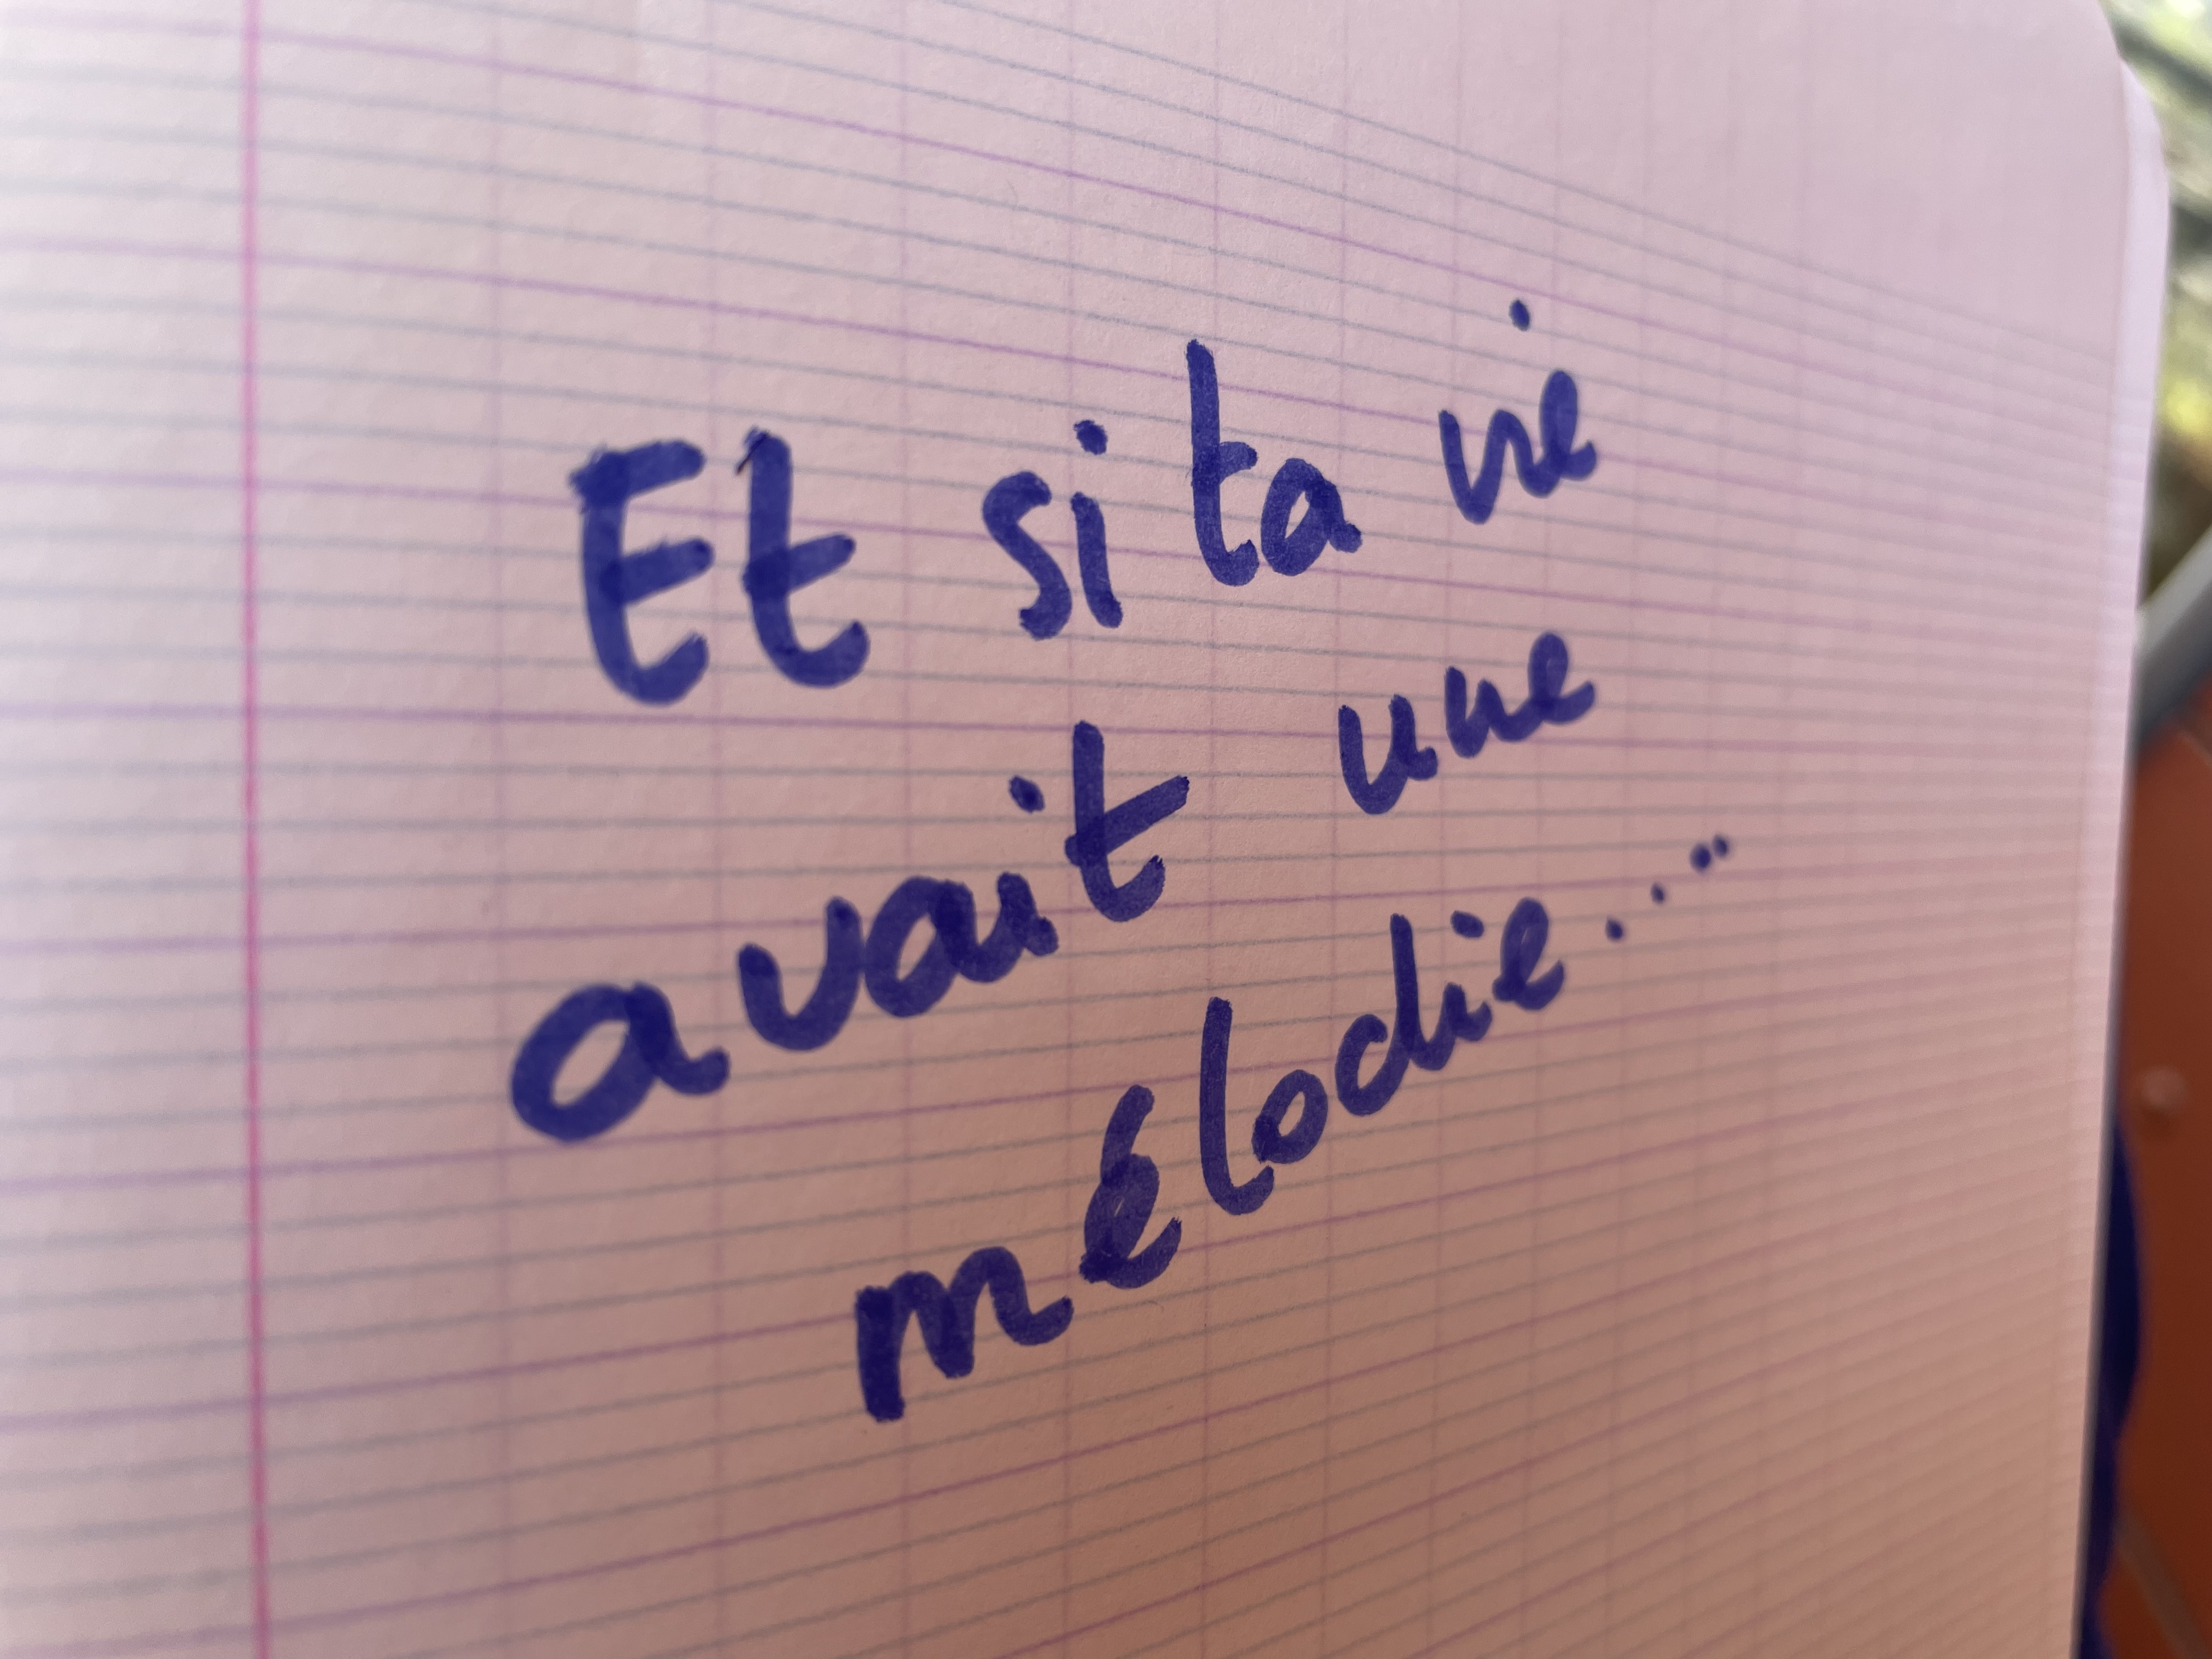 Et si ta vie
avait une
mélodie....